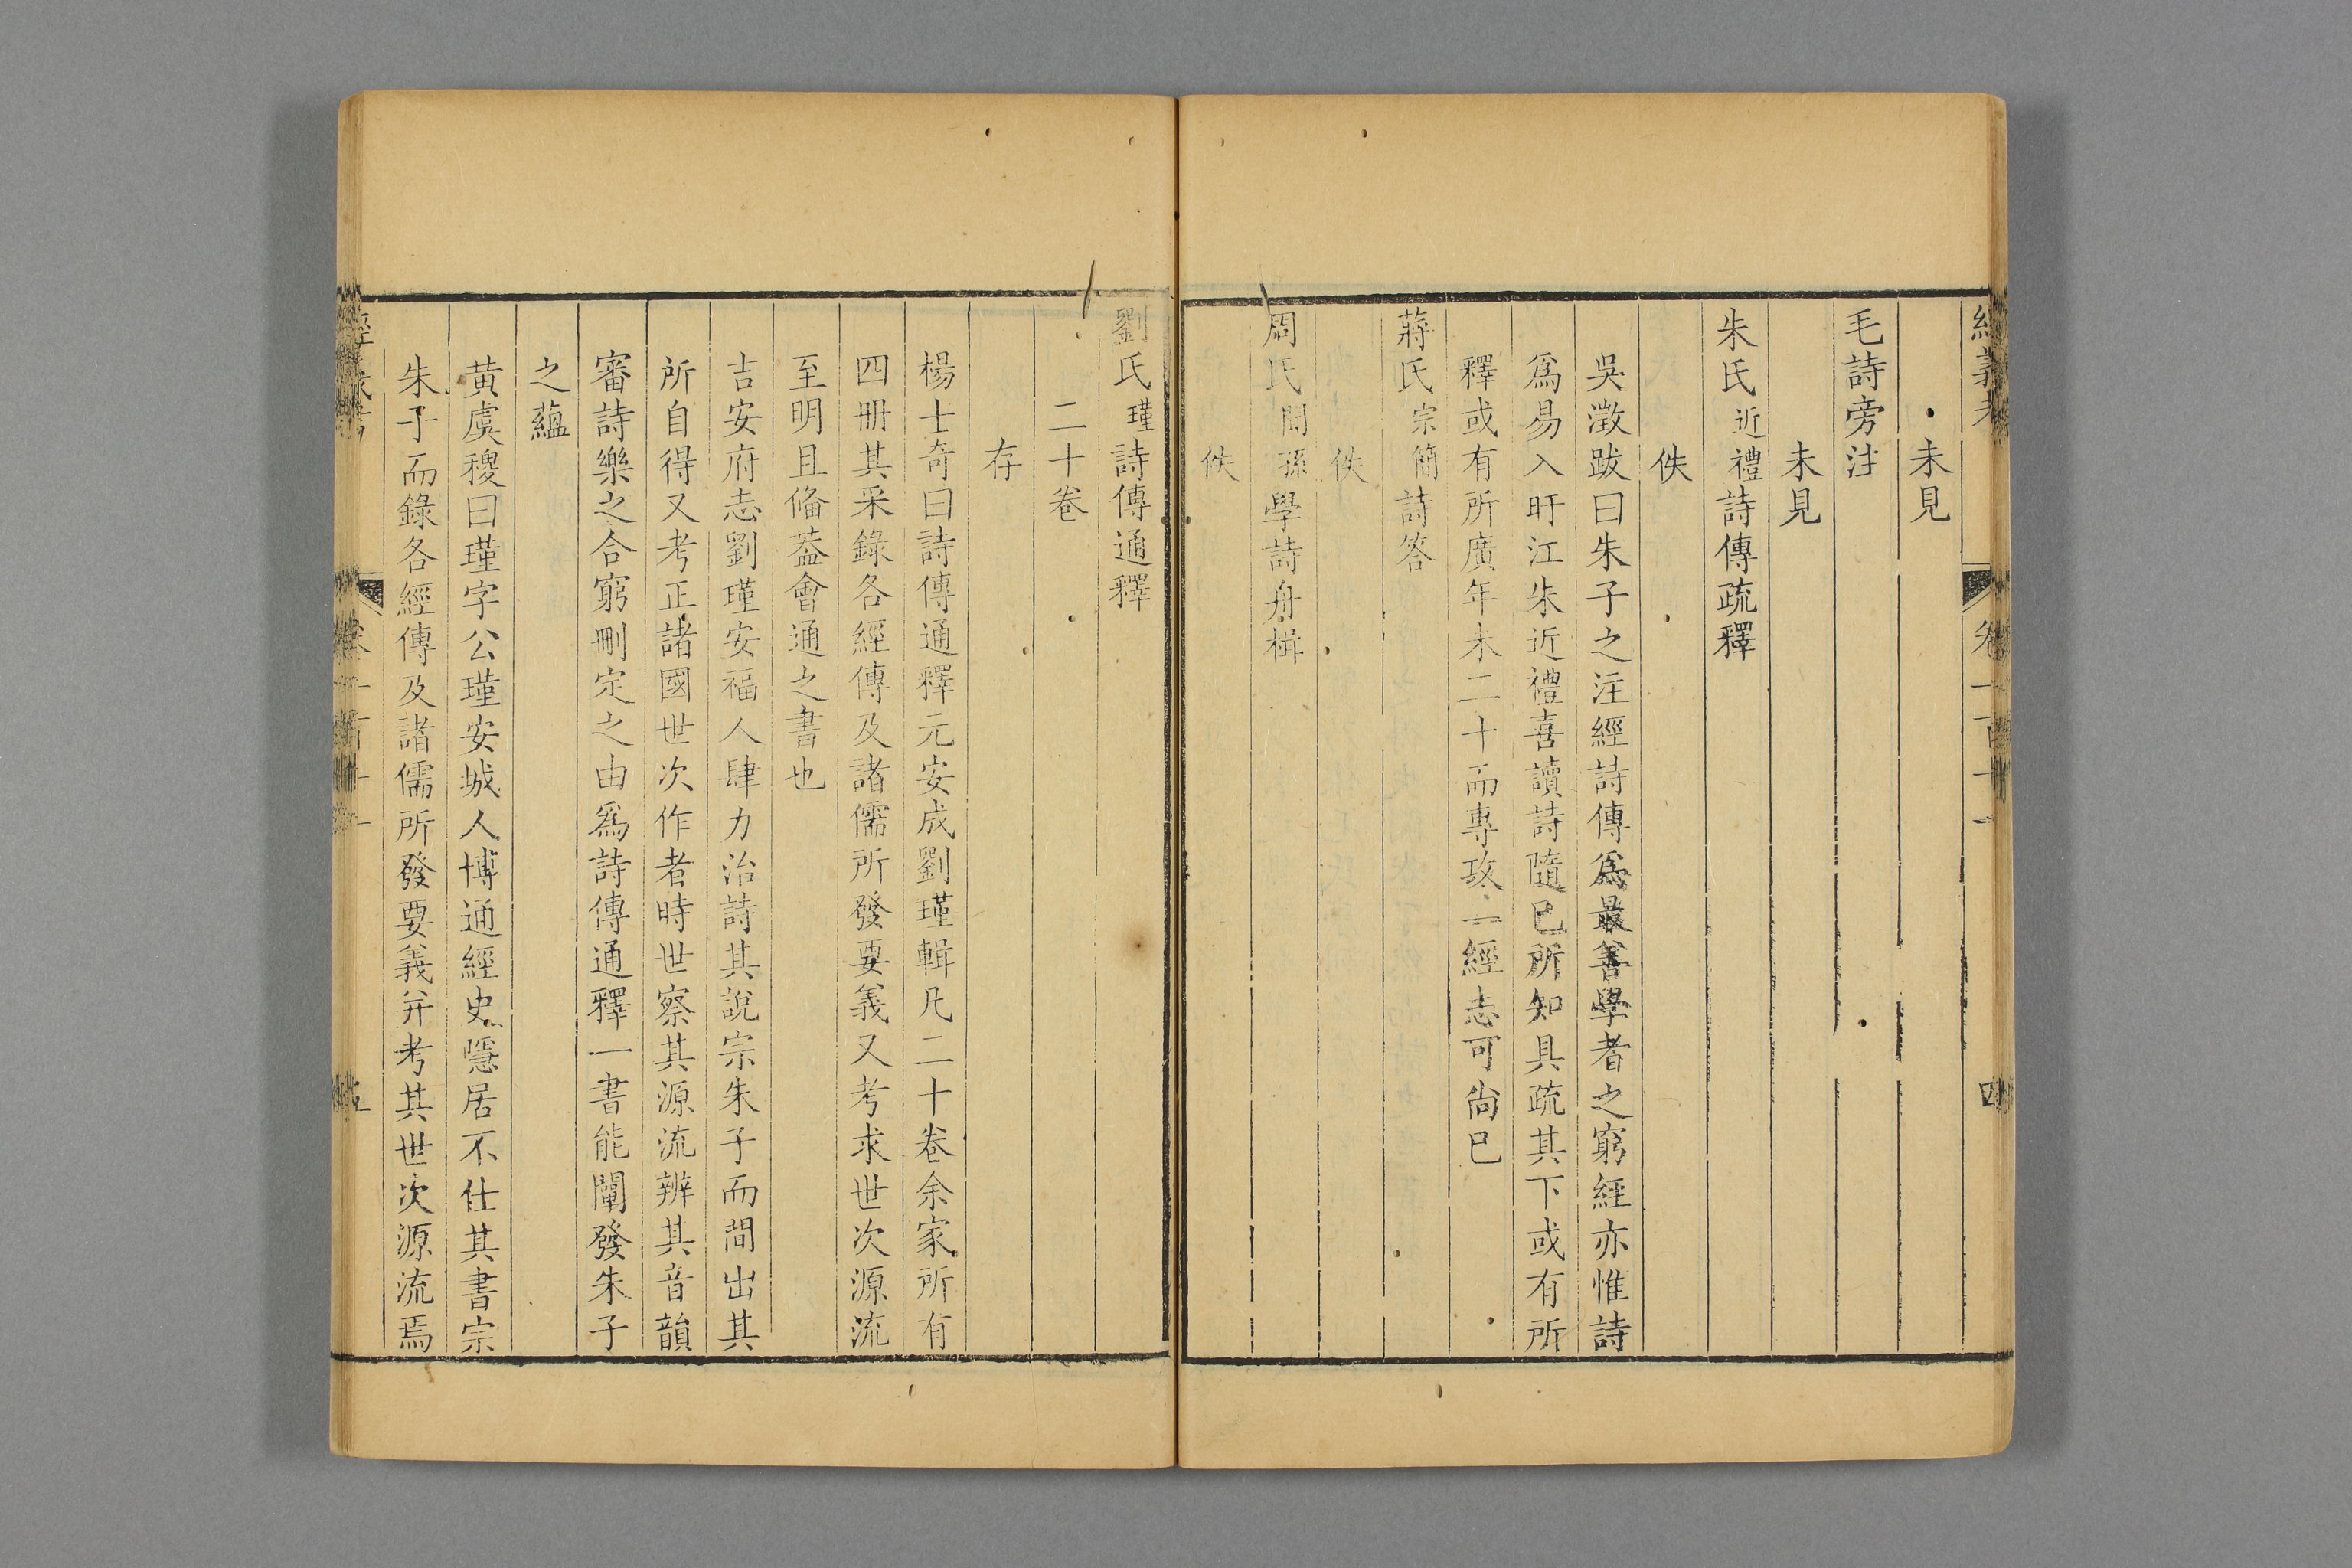 經義考 卷一百十一 四
未見
毛詩旁注
未見
朱氏近禮詩傳疏釋
佚
吳澂跋曰朱子之注經詩傳爲最善學者之窮經亦惟詩
爲易入盱江朱近禮喜讀詩隨已所知具疏其下或有所
釋或有所廣年未二十而專攻一經志可尚巳
蔣氏宗簡詩答
佚
周氏聞孫學詩舟楫
佚
劉氏瑾詩傳通釋
二十卷
存
楊士奇曰詩傳通釋元安成劉瑾輯凡二十卷余家所有
四冊其采錄各經傳及諸儒所發要義又考求世次源流
至明且俻葢會通之書也
吉安府志劉瑾安福人肆力治詩其說宗朱子而間出其
所自得又考正諸國世次作者時世察其源流辨其音韻
審詩樂之合窮刪定之由爲詩傳通釋一書能闡發朱子
之蘊
黃虞稷曰瑾字公瑾安城人博通經史隱居不仕其書宗
朱子而錄各經傳及諸儒所發要義并考其世次源流焉